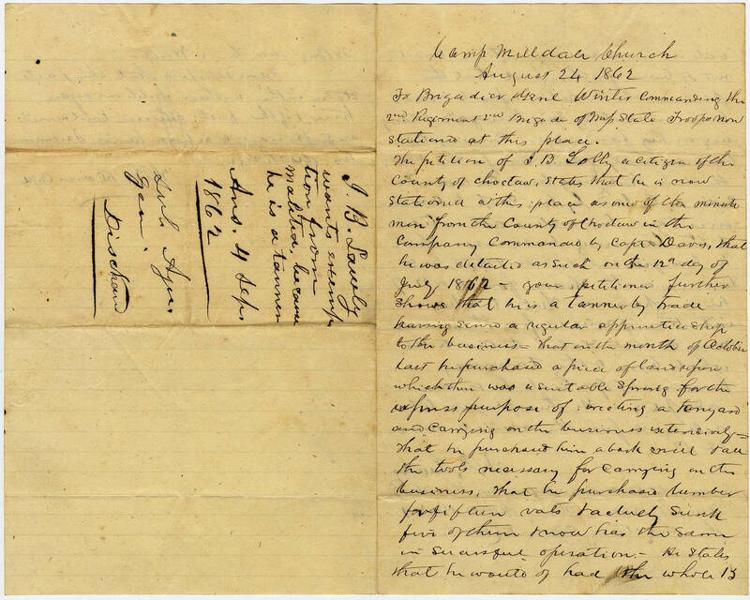 Camp Milldale Church
August 24 1862
To Brigadier Genl Winter Commanding the
2nd Regiment 2nd Brigade of Miss State Troops now
Stationed at this place.
The petition of J B Lolly a citizen of the
County of Choctaw, States that he is now
Stationed at this place as one of the minute
men from the County of Choctaw in the
Company Commanded by Capt Davis, that
he was detailed as such on the 12th day of
July 1862 - your petitioner further
Shows that he is a tanner by trade
having served a regular apprenticeship
to the business - that in the month of October
last he purchased a piece of land upon
which there was a suitable Spring for the
express purpose of erecting a Tanyard
and Carrying on the business extensively -
That he purchased him a bark mill & all
the tools necessary for Carrying on the
business, that he purchased lumber
for fifteen vats & actually Sunk
five of them & now has the same
in Successful operation. - He States
that he would of had the whole 15
J. B. Lawly
wants exemp
tion from
malitia because
he is a tanner
Ans. 4 Sept
1862
Agn.
Gen.
Dischard